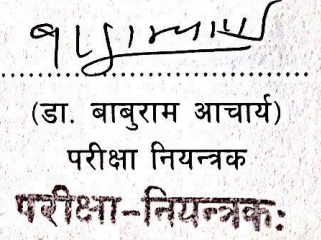 ........................................
(डा. बाबुराम आचार्य)
परीक्षा नियन्त्रक
परीक्षा-नियन्त्रकः